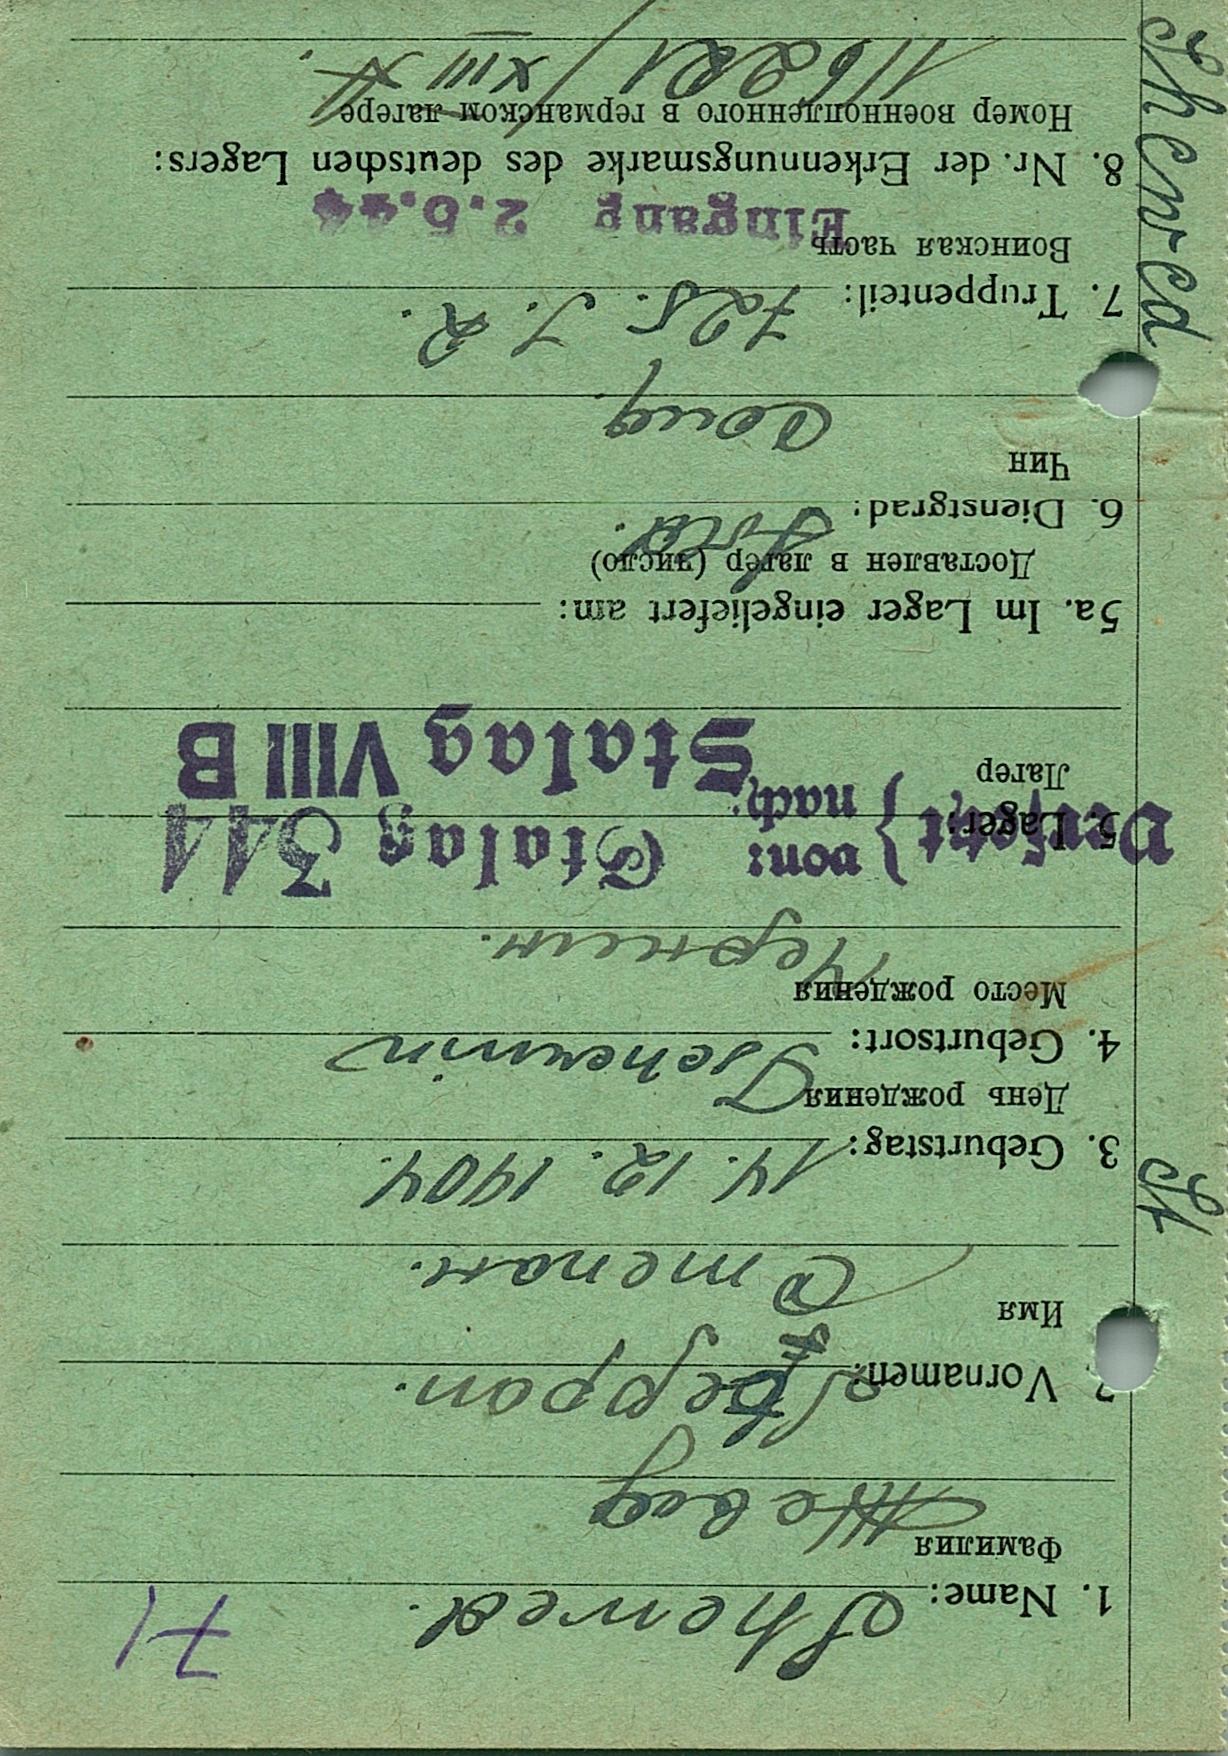 71
1. Name: Shewed.
Фамилия
Жевед
2. Vornamen: Steppan.
Имя
Степан.
3. Geburtstag: 14. 12. 1904.
День рождения
4. Geburtsort: Tschermin
Место рождения
Чермин.
Versetzt } von: Stalag 344
nach: Stalag VIII B
5. Lager:
Лагер
5a. Im Lager eingeliefert am:
Доставлен в лагер (число)
6. Dienstgrad: Sold.
Чин
7. Truppenteil: 725. J. R.
Воинская часть
Eingang 2.5.44
8. Nr. der Erkennungsmarke des deutschen Lagers:
Номер военнопленного в германском лагере
116221 / XIII A.
St